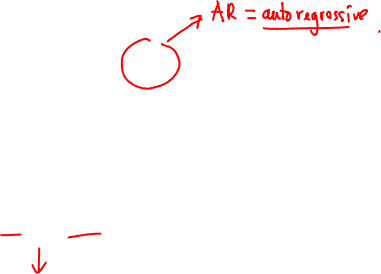 AR = autoregressive.